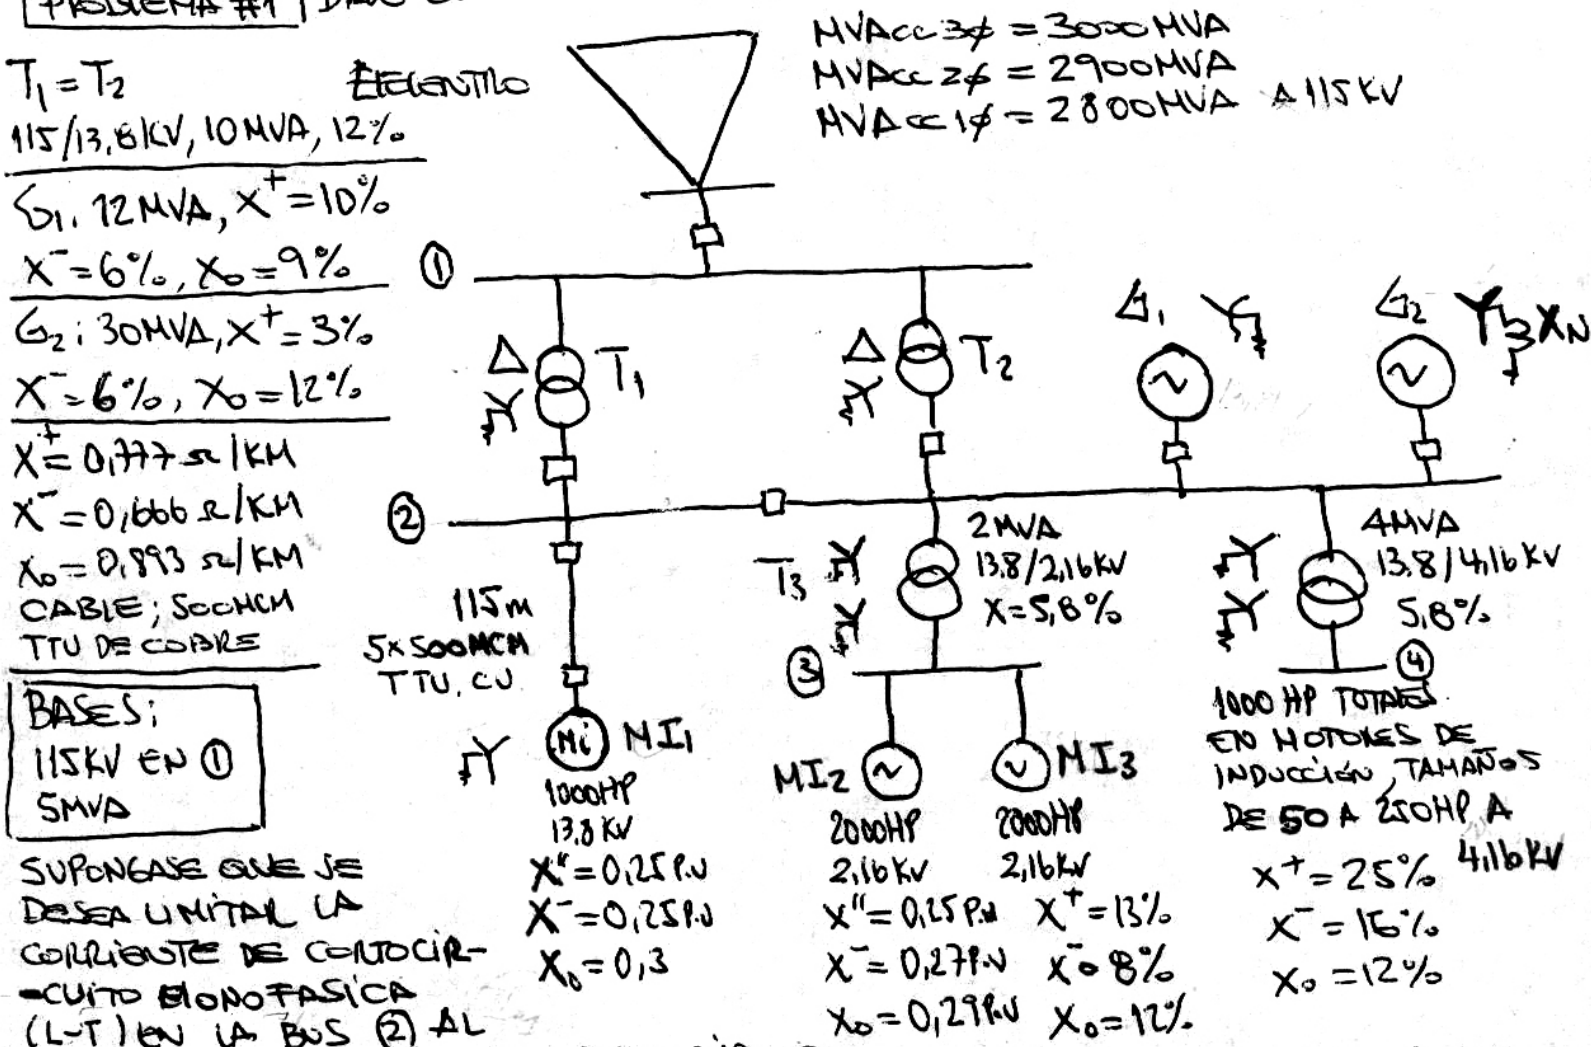 PROBLEMA #1
T1 = T2
115/13,8KV, 10MVA, 12%
G1. 12MVA, X+=10%
X-=6%, X0=9%
G2: 30MVA, X+=3%
X-=6%, X0=12%
X+=0,777 Ω/KM
X-=0,666 Ω/KM
X0=0,893 Ω/KM
CABLE; 500MCM
TTU DE COBRE
BASES:
115KV EN ①
5MVA
SUPONGASE QUE SE
DESEA LIMITAR LA
CORRIENTE DE CORTOCIR-
-CUITO MONOFASICA
(L-T) EN LA BUS ② AL
MVAcc 3ϕ = 3000MVA
MVAcc 2ϕ = 2900MVA
MVAcc 1ϕ = 2800MVA A 115KV
①
Δ T1
Δ T2
G1
G2 XN
②
115m
5x500MCM
TTU, CU
Mi MI1
1000HP
13.8 KV
X"=0,25 P.U
X-=0,25 P.U
X0=0,3
T3
2MVA
13.8/2,16KV
X=5,8%
③
MI2
2000HP
2,16KV
X"=0,25 P.U
X-=0,27 P.U
X0=0,29 P.U
MI3
2000HP
2,16KV
X+=13%
X-=8%
X0=12%
4MVA
13.8/4,16KV
5,8%
④
1000 HP TOTALES
EN MOTORES DE
INDUCCIÓN, TAMAÑOS
DE 50 A 250HP A
4,16KV
X+=25%
X-=16%
X0=12%